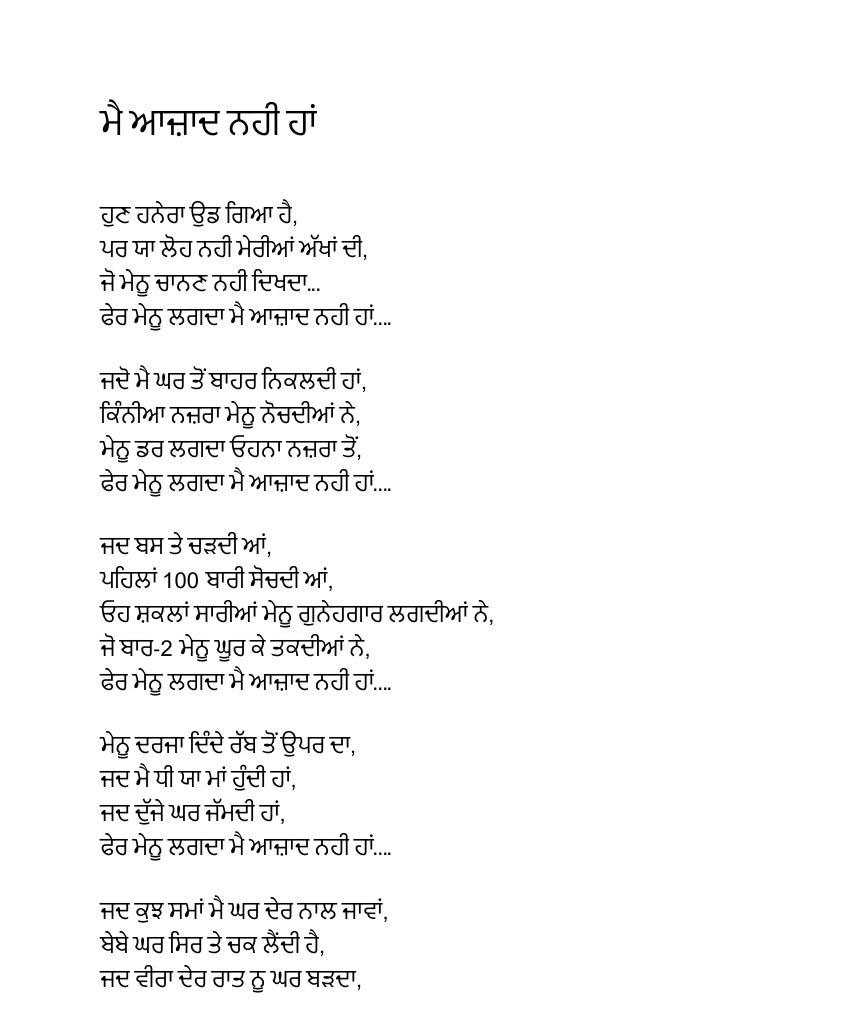 ਮੈ ਆਜ਼ਾਦ ਨਹੀ ਹਾਂ
ਹੁਣ ਹਨੇਰਾ ਉਡ ਗਿਆ ਹੈ,
ਪਰ ਯਾ ਲੋਹ ਨਹੀ ਮੇਰੀਆਂ ਅੱਖਾਂ ਦੀ,
ਜੋ ਮੇਨੂ ਚਾਨਣ ਨਹੀ ਦਿਖਦਾ...
ਫੇਰ ਮੇਨੂ ਲਗਦਾ ਮੈ ਆਜ਼ਾਦ ਨਹੀ ਹਾਂ....
ਜਦੋ ਮੈ ਘਰ ਤੋਂ ਬਾਹਰ ਨਿਕਲਦੀ ਹਾਂ,
ਕਿੰਨੀਆ ਨਜ਼ਰਾ ਮੇਨੂ ਨੋਚਦੀਆਂ ਨੇ,
ਮੇਨੂ ਡਰ ਲਗਦਾ ਓਹਨਾ ਨਜ਼ਰਾ ਤੋਂ,
ਫੇਰ ਮੇਨੂ ਲਗਦਾ ਮੈ ਆਜ਼ਾਦ ਨਹੀ ਹਾਂ....
ਜਦ ਬਸ ਤੇ ਚੜਦੀ ਆਂ,
ਪਹਿਲਾਂ 100 ਬਾਰੀ ਸੋਚਦੀ ਆਂ,
ਓਹ ਸ਼ਕਲਾਂ ਸਾਰੀਆਂ ਮੇਨੂ ਗੁਨੇਹਗਾਰ ਲਗਦੀਆਂ ਨੇ,
ਜੋ ਬਾਰ-2 ਮੇਨੂ ਘੂਰ ਕੇ ਤਕਦੀਆਂ ਨੇ,
ਫੇਰ ਮੇਨੂ ਲਗਦਾ ਮੈ ਆਜ਼ਾਦ ਨਹੀ ਹਾਂ....
ਮੇਨੂ ਦਰਜਾ ਦਿੰਦੇ ਰੱਬ ਤੋਂ ਉਪਰ ਦਾ,
ਜਦ ਮੈ ਧੀ ਯਾ ਮਾਂ ਹੁੰਦੀ ਹਾਂ,
ਜਦ ਦੁੱਜੇ ਘਰ ਜੱਮਦੀ ਹਾਂ,
ਫੇਰ ਮੇਨੂ ਲਗਦਾ ਮੈ ਆਜ਼ਾਦ ਨਹੀ ਹਾਂ....
ਜਦ ਕੁਝ ਸਮਾਂ ਮੈ ਘਰ ਦੇਰ ਨਾਲ ਜਾਵਾਂ,
ਬੇਬੇ ਘਰ ਸਿਰ ਤੇ ਚਕ ਲੈਂਦੀ ਹੈ,
ਜਦ ਵੀਰਾ ਦੇਰ ਰਾਤ ਨੂ ਘਰ ਬੜਦਾ,